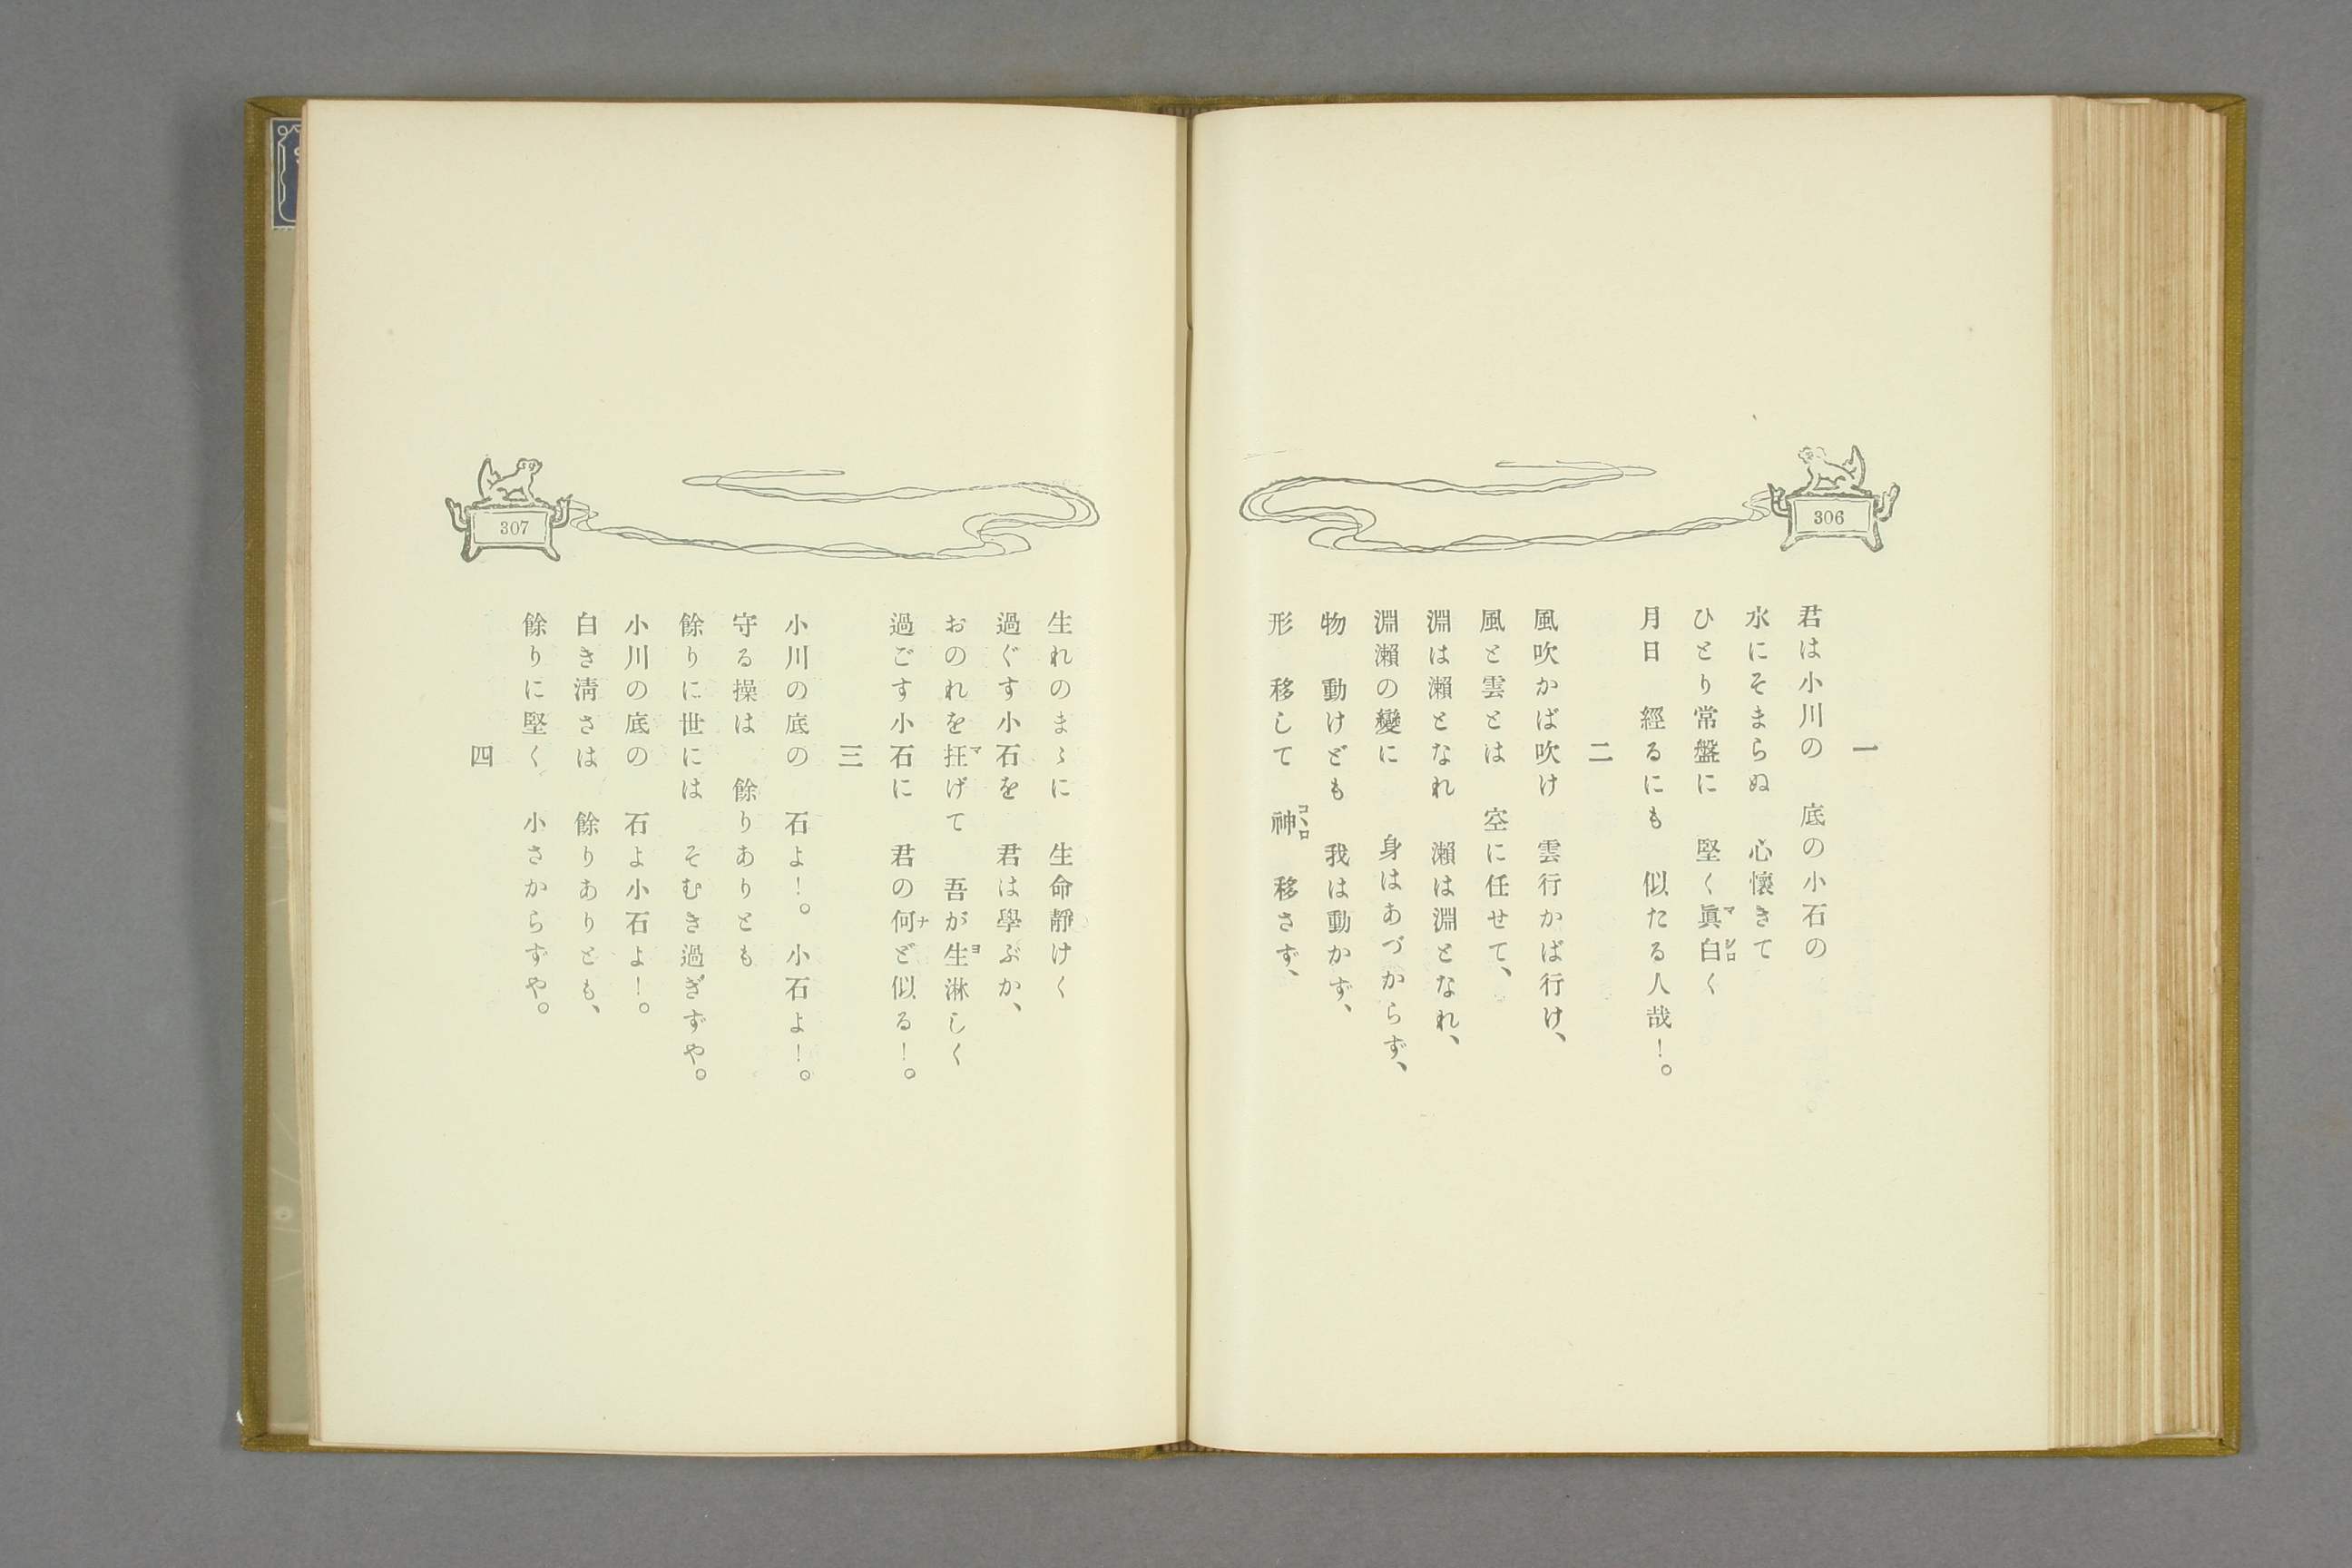 306
一
君は小川の　底の小石の
水にそまらぬ　心懐きて
ひとり常盤に　堅く眞白く
月日　經るにも　似たる人哉！。
二
風吹かば吹け　雲行かば行け、
風と雲とは　空に任せて、
淵は瀬となれ　瀬は淵となれ、
淵瀬の變に　身はあづからず、
物　動けども　我は動かず、
形　移して　神　移さず、
307
生れのまゝに　生命靜けく
過ぐす小石を　君は學ぶか、
おのれを抂げて　吾が生淋しく
過ごす小石に　君の何ど似る！。
三
小川の底の　石よ！。小石よ！。
守る操は　餘りありとも
餘りに世には　そむき過ぎずや。
小川の底の　石よ小石よ！。
白き淸さは　餘りありとも、
餘りに堅く　小さからずや。
四